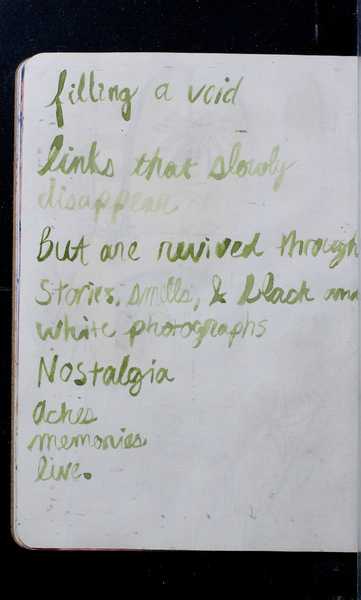 filling a void
links that slowly
disappear
But are revived through
Stories, smells, & black and
white photographs
Nostalgia
Aches
memories
live.